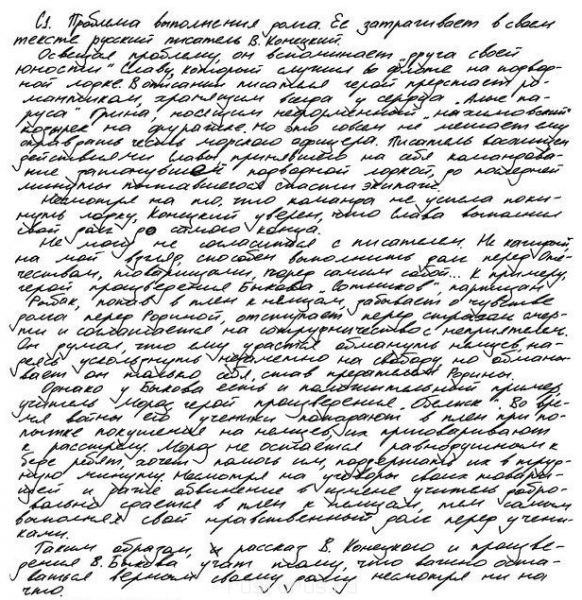 С1. Проблема выполнения долга. Ее затрагивает в своем
тексте русский писатель В. Конецкий.
Освещая проблему, он вспоминает друга своей
юности Славу, который служил во флоте на подвод-
ной лодке. В описании писателя герой предстает ро-
мантиком, хранящим всегда у сердца „Алые па-
руса" Грина, носящим неформенный „нахимовский"
козырек на фуражке. Но это совсем не мешает ему
оправдать честь морского офицера. Писатель восхищен
действиями Славы, принявшего на себя командова-
ние затонувшей подводной лодкой, до последней
минуты пытавшегося спасти экипаж.
Несмотря на то, что команда не успела поки-
нуть лодку, Конецкий уверен, что Слава выполнил
свой долг до самого конца.
Не могу не согласиться с писателем. Не каждый,
на мой взгляд, способен выполнить долг перед Оте-
чеством, товарищами, перед самим собой... К примеру,
герой произведения Быкова „Сотников", партизан
Рыбак, попав в плен к немцам, забывает о чувстве
долга перед Родиной, отступает перед страхом смер-
ти и соглашается на сотрудничество с неприятелем.
Он думал, что ему удастся обмануть немцев, на-
деясь ускользнуть незаметно на свободу, но обманы-
вает он только себя, став предателем Родины.
Однако у Быкова есть и положительный пример,
учитель Мороз, герой произведения „Обелиск". Во вре-
мя войны его ученики попадают в плен при по-
пытке покушения на немцев, их приговаривают
к расстрелу. Мороз не остается равнодушным к
беде ребят, хочет помочь им, поддержать их в труд-
ную минуту. Несмотря на уговоры своих товари-
щей и даже обвинение в измене учитель добро-
вольно сдается в плен к немцам, тем самым
выполняя свой нравственный долг перед учени-
ками.
Таким образом, и рассказ В. Конецкого и произве-
дения В. Быкова учат тому, что важно оста-
ваться верным своему долгу несмотря ни на
что.